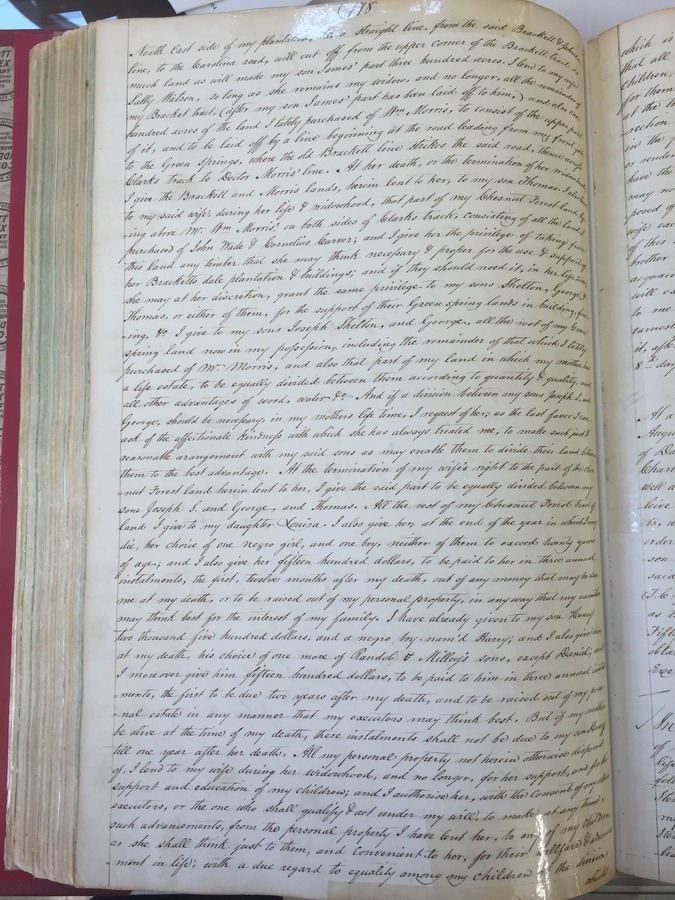 178
North East side of my plantation, in a straight line, from the said Brackett & Johns
line, to the Carolina road, will cut off from the upper corner of the Brackett tract as
much land as will make my son James' part three hundred acres. I lend to my wife
Sally Watson, so long as she remains my widow, and no longer, all the remainder of
my Bracket tract, (after my son James' part has been laid off to him,) and also one
hundred acres of the land I lately purchased of Wm. Morris, to consist of the upper part
of it, and to be laid off by a line beginning at the road leading from my front gate
to the Green Springs, where the old Brackett line strikes the said road, thence across
Clarks track to Doctor Morris' line. At her death, or the termination of her widowhood,
I give the Brackett and Morris lands, herein lent to her, to my son Thomas. I also
to my said wife during her life & widowhood, that part of my Chesnut Forest land ly-
ing above Mr. Wm. Morris', on both sides of Clarks track, consisting of all the land I
purchased of John Wade & Cornelius Carver; and I give her the privilege of taking from
this land any timber that she may think necessary & proper for the use & support of
her Bracketts dale plantation & buildings; and if they should need it, in her life time,
she may at her discretion, grant the same privilege to my sons Shelton, George, &
Thomas, or either of them, for the support of their Green spring lands in building,
-ing, &c. I give to my sons Joseph Shelton, and George, all the rest of my Green
spring land now in my possession, including the remainder of that which I lately
purchased of Wm. Morris, and also that part of my land in which my mother has
a life estate, to be equally divided between them according to quantity & quality, and
all other advantages of wood, water &c. And if a division between my sons Joseph S. and
George, should be necessary, in my mothers life time, I request of her, as the last favor I can
ask of the affectionate kindness with which she has always treated me, to make such just &
reasonable arangement with my said sons as may enable them to divide their land between
them to the best advantage. At the termination of my wife's right to the part of the Ches-
-nut Forest land herein lent to her, I give the said part to be equally divided between my
sons Joseph S. and George, and Thomas. All the rest of my Chesnut Forest tract of
land I give to my daughter Louisa. I also give her, at the end of the year in which I may
die, her choice of one negro girl, and one boy, neither of them to exceed twenty years
of age; and I also give her fifteen hundred dollars, to be paid to her in three annual
instalments, the first, twelve months after my death, out of any money that may be due
me at my death, or to be raised out of my personal property, in any way that my executors
may think best for the interest of my family. I have already given to my son Henry
two thousand five hundred dollars, and a negro boy nam'd Harry; and I also give him
at my death, his choice of one more of Randol & Milley's sons, except Daniel; and
I moreover give him fifteen hundred dollars, to be paid to him in three annual instal-
ments, the first to be due two years after my death, and to be raised out of my perso-
-nal estate in any manner that my executors may think best. But if my mother
be alive at the time of my death, these instalments shall not be due to my son Henry
till one year after her death. All my personal property not herein otherwise disposed
of, I lend to my wife during her widowhood, and no longer, for her support, and for the
support and education of my children; and I authorise her, with the consent of my other
executors, or the one who shall qualify & act under my will, to make at any time,
such advancements, from the personal property I have lent her, to any of my children
as she shall think just to them, and convenient to her, for their welfare & advance-
ment in life; with a due regard to equality among my children in the division
which